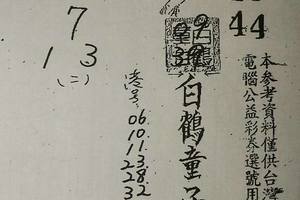 44
本參考資料僅供台灣
電腦公益彩券選號用
白鶴童子
港号
06.
10.
11.
13.
23.
28.
32
7
1 3
(二)